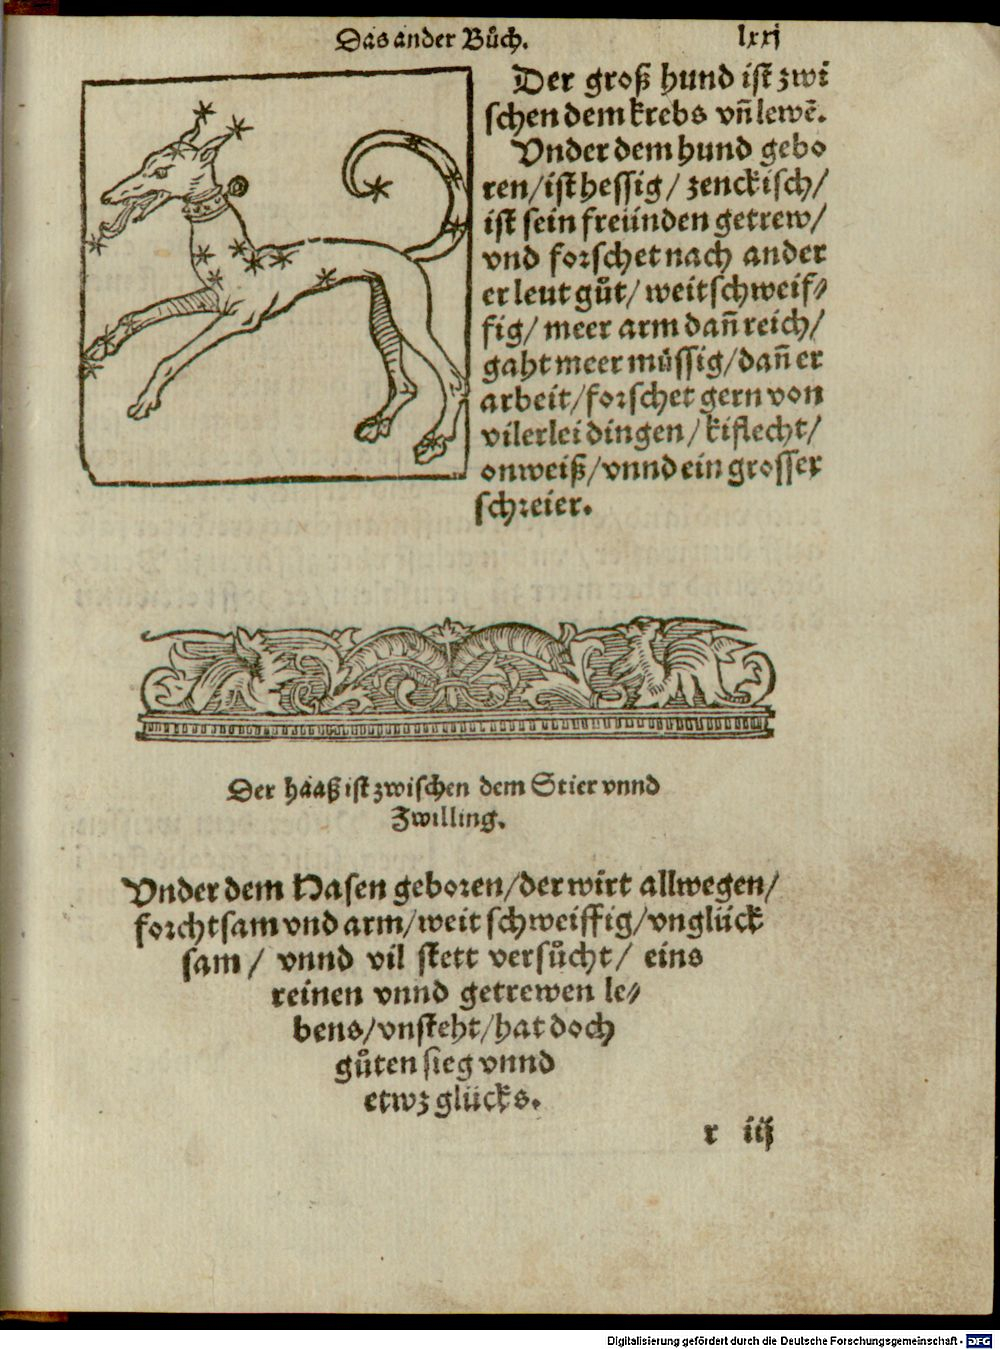 Das ander Bůch.
lxxj
Der groß hund ist zwi
schen dem krebs vñ lewē.
Vnder dem hund gebo
ren/ist hessig/ zenckisch/
ist sein freünden getrew/
vnd forschet nach ander
er leut gůt/ weitschweif⸗
fig/ meer arm dañ reich/
gaht meer müssig/dañ er
arbeit/forschet gern von
vilerlei dingen/kiflecht/
onweiß/vnnd ein grosser
schreier.
Der haaß ist zwischen dem Stier vnnd
Zwilling.
Vnder dem Hasen geboren/der wirt allwegen/
forchtsam vnd arm/weit schweiffig/vnglück
sam/ vnnd vil stett versůcht/ eins
reinen vnnd getrewen le⸗
bens/vnsteht/hat doch
gůten sieg vnnd
etwz glücks.
r iij
Digitalisierung gefördert durch die Deutsche Forschungsgemeinschaft - DFG